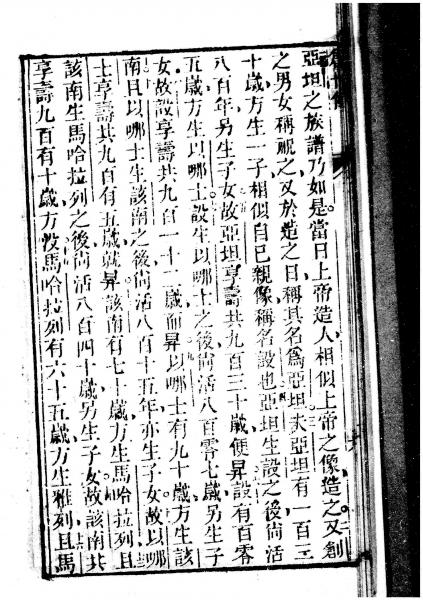 亞坦之族譜乃如是當日上帝造人相似上帝之像造之又創
之男女稱祝之又於造之日稱其名爲亞坦夫亞坦有一百三
十歲方生一子相似自己親像稱名設也亞坦生設之後尚活
八百年另生子女故亞坦享壽共九百三十歲便昇設有百零
五歲方生以哪士設生以哪士之後尚活八百零七歲另生子
女故設享壽共九百一十二歲而昇以哪士有九十歲方生該
南且以哪士生該南之後尚活八百十五年亦生子女故以哪
士享壽共九百有五歲就昇該南有七十歲方生馬哈拉列且
該南生馬哈拉列之後尚活八百四十歲另生子女故該南共
享壽九百有十歲方沒馬哈拉列有六十五歲方生雅列且馬